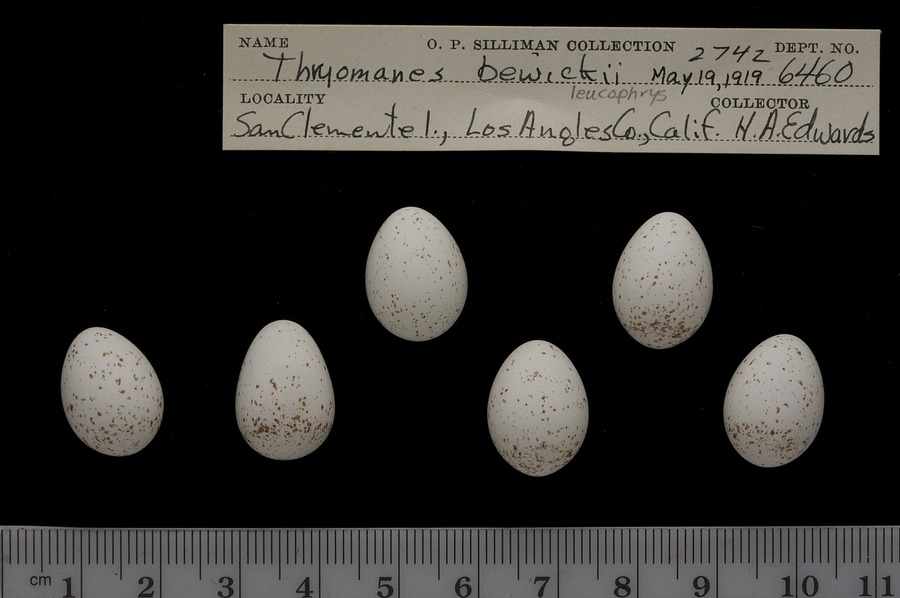 NAME O. P. SILLIMAN COLLECTION 2742 DEPT. NO.
Thryomanes bewickii May 19, 1919 6460
leucophrys
LOCALITY COLLECTOR
San Clemente I., Los Angles Co., Calif. H. A. Edwards
cm 1 2 3 4 5 6 7 8 9 10 11